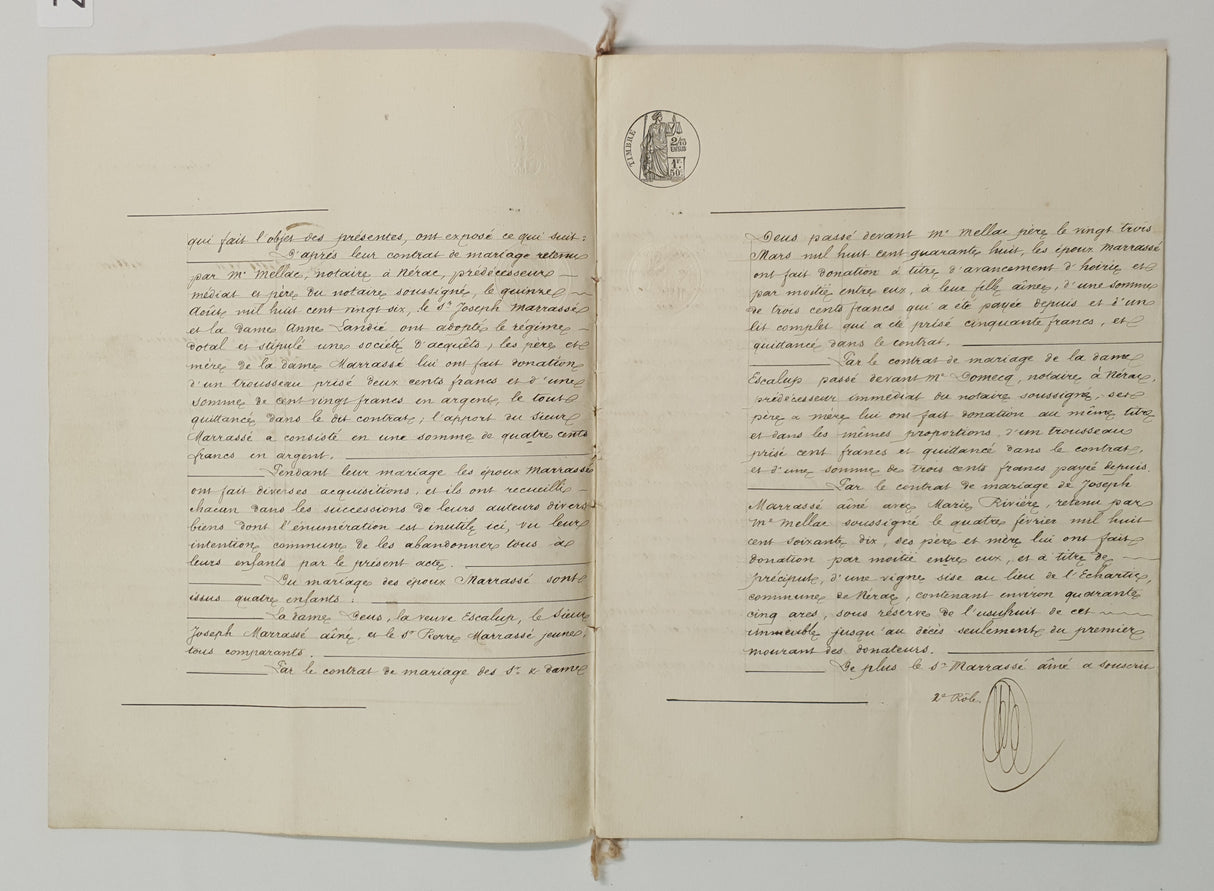 qui fait l'objet des présentes, ont exposé ce qui suit :
D'après leur contrat de mariage retenu
par Me Mellac, notaire à Nérac, prédécesseur
médiat et père du notaire soussigné, le quinze
Août mil huit cent vingt six, le Sr Joseph Marrassé
et la dame Anne Landié ont adopté le régime
dotal et stipulé une société d'acquêts ; les père et
mère de la dame Marrassé lui ont fait donation
d'un trousseau prisé deux cents francs et d'une
somme de cent vingt francs en argent, le tout
quittancé dans le dit contrat ; l'apport du sieur
Marrassé a consisté en une somme de quatre cents
francs en argent.
Pendant leur mariage les époux Marrassé
ont fait diverses acquisitions, et ils ont recueilli
chacun dans les successions de leurs auteurs divers
biens dont l'énumération est inutile ici, vu leur
intention commune de les abandonner tous à
leurs enfants par le présent acte.
Du mariage des époux Marrassé sont
issus quatre enfants :
La dame Deus, la veuve Escalup, le sieur
Joseph Marrassé aîné, et le Sr Pierre Marrassé jeune,
tous comparants.
Par le contrat de mariage des Sr & dame
TIMBRE
2/10
EN SUS
1F.
50C.
Deus passé devant Me Mellac père le vingt trois
Mars mil huit cent quarante huit, les époux Marrassé
ont fait donation à titre d'avancement d'hoirie et
par moitié entre eux, à leur fille aînée, d'une somme
de trois cents francs qui a été payée depuis et d'un
lit complet qui a été prisé cinquante francs, et
quittancé dans le contrat.
Par le contrat de mariage de la dame
Escalup passé devant Me Domecq, notaire à Nérac,
prédécesseur immédiat du notaire soussigné, ses
père & mère lui ont fait donation au même titre
et dans les mêmes proportions, d'un trousseau
prisé cent francs et quittancé dans le contrat,
et d'une somme de trois cents francs payée depuis.
Par le contrat de mariage de Joseph
Marrassé aîné avec Marie Rivière, retenu par
Me Mellac soussigné le quatre février mil huit
cent soixante dix, ses père et mère lui ont fait
donation par moitié entre eux, et à titre de
préciput, d'une vigne sise au lieu de l'Echartie,
commune de Nérac, contenant environ quarante
cinq ares, sous réserve de l'usufruit de cet
immeuble jusqu'au décès seulement du premier
mourant des donateurs.
De plus le Sr Marrassé aîné a souscrit
2e Rôle.